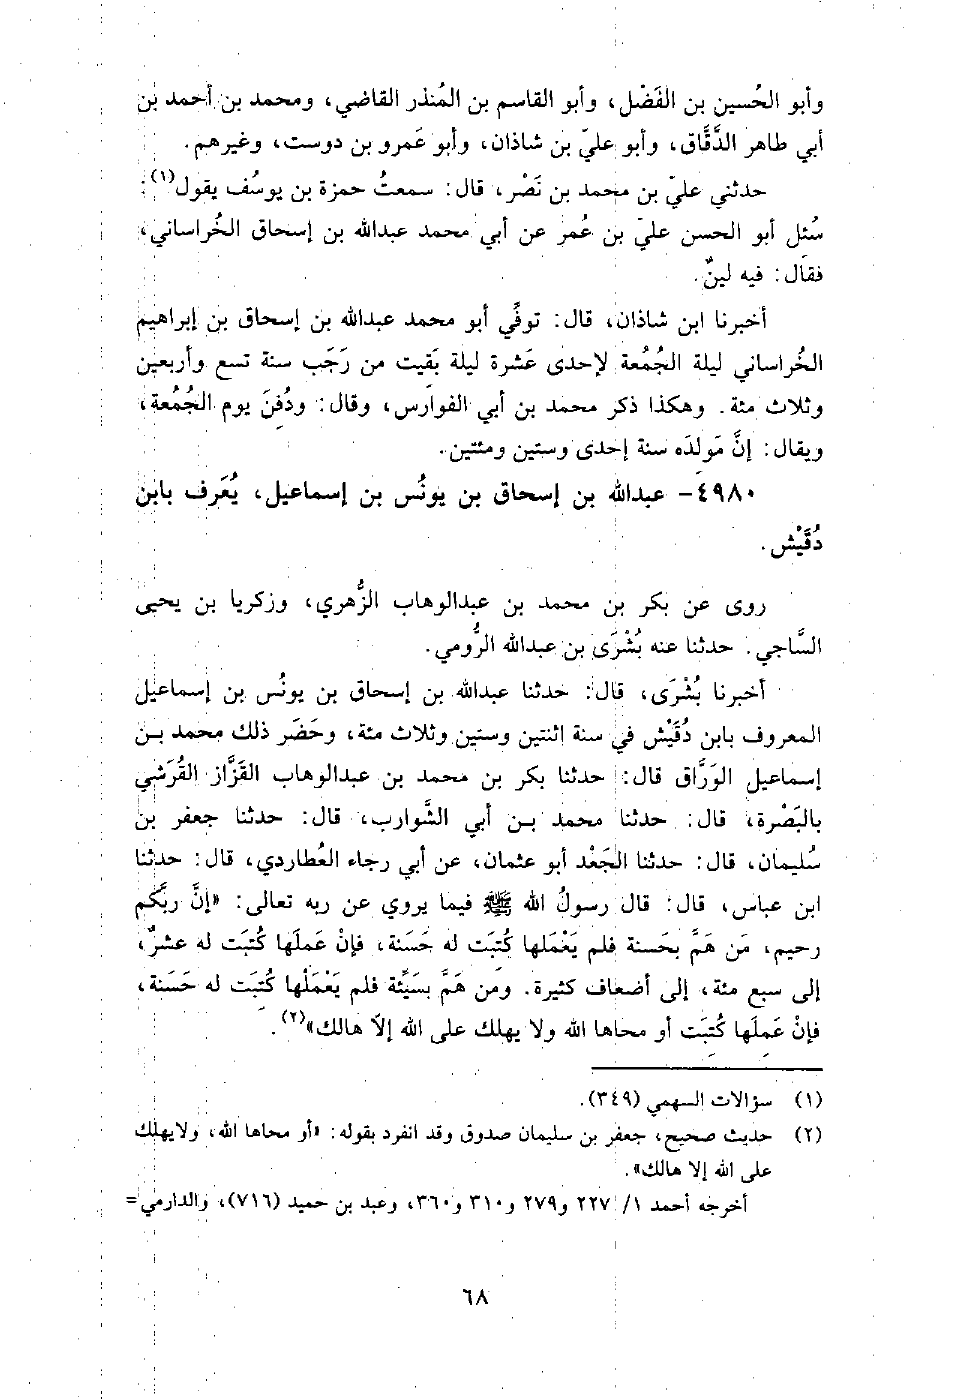 وأبو الحُسين بن الفَضْل، وأبو القاسم بن المُنذر القاضي، ومحمد بن أحمد بن
أبي طاهر الدَّقَّاق، وأبو عليّ بن شاذان، وأبو عَمرو بن دوست، وغيرهم.
حدثني عليّ بن محمد بن نَصْر، قال: سمعتُ حمزة بن يوسُف يقول(١):
سُئل أبو الحسن عليّ بن عُمر عن أبي محمد عبدالله بن إسحاق الخُراساني،
فقال: فيه لينٌ.
أخبرنا ابن شاذان، قال: توفِّي أبو محمد عبدالله بن إسحاق بن إبراهيم
الخُراساني ليلة الجُمُعة لإحدى عَشرة ليلة بَقِيت من رَجَب سنة تسع وأربعين
وثلاث مئة. وهكذا ذكر محمد بن أبي الفوارس، وقال: ودُفِنَ يوم الجُمُعة،
ويقال: إنَّ مَولدَه سنة إحدى وستين ومئتين.
٤٩٨٠- عبدالله بن إسحاق بن يونُس بن إسماعيل، يُعَرف بابن
دُقَيْش.
روى عن بكر بن محمد بن عبدالوهاب الزُّهري، وزكريا بن يحيى
السَّاجي. حدثنا عنه بُشْرَى بن عبدالله الرُّومي.
أخبرنا بُشْرَى، قال: حدثنا عبدالله بن إسحاق بن يونُس بن إسماعيل
المعروف بابن دُقَيْش في سنة اثنتين وستين وثلاث مئة، وحَضَر ذلك محمد بن
إسماعيل الوَرَّاق قال: حدثنا بكر بن محمد بن عبدالوهاب القَزَّاز القُرَشي
بالبَصْرة، قال: حدثنا محمد بن أبي الشَّوارب، قال: حدثنا جعفر بن
سُليمان، قال: حدثنا الجَعْد أبو عثمان، عن أبي رجاء العُطاردي، قال: حدثنا
ابن عباس، قال: قال رسولُ الله ﷺ فيما يروي عن ربه تعالى: «إنَّ ربَّكم
رحيم، مَن هَمَّ بحَسنة فلم يَعْمَلها كُتبَت له حَسَنة، فإنْ عَملَها كُتبَت له عشرٌ،
إلى سبع مئة، إلى أضعاف كثيرة. ومن هَمَّ بسَيِّئة فلم يَعْمَلْها كُتبَت له حَسَنة،
فإنْ عَملَها كُتِبَت أو محاها الله ولا يهلك على الله إلاّ هالك»(٢).
(١) سؤالات السهمي (٣٤٩).
(٢) حديث صحيح، جعفر بن سليمان صدوق وقد انفرد بقوله: «أو محاها الله، ولايهلك
على الله إلا هالك».
أخرجه أحمد ١/ ٢٢٧ و٢٧٩ و٣١٠ و٣٦٠، وعبد بن حميد (٧١٦)، والدارمي=
٦٨